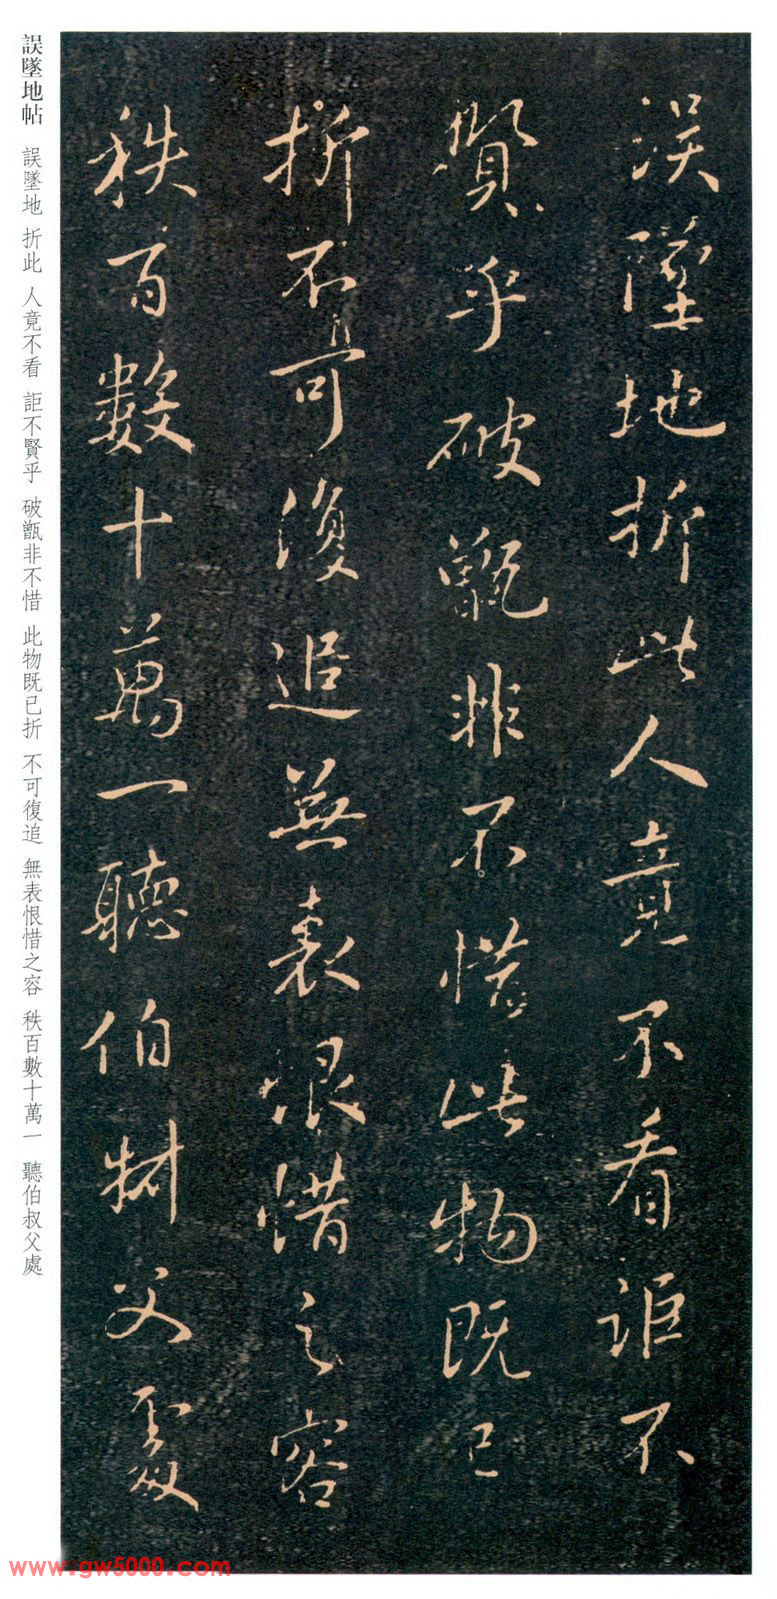 誤墜地折此人竟不看詎不
賢乎破甑非不惜此物既已
折不可復追無表恨惜之容
秩百數十萬一聽伯叔父處
誤墜地帖 誤墜地 折此 人竟不看 詎不賢乎 破甑非不惜 此物既已折 不可復追 無表恨惜之容 秩百數十萬一 聽伯叔父處
www.gw5000.com